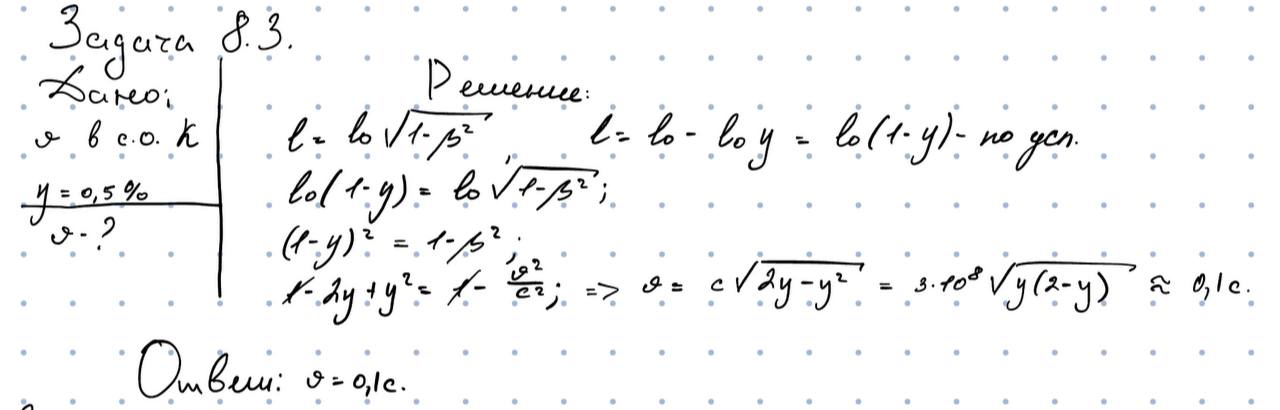 Задача 8.3.
Дано:
υ в с.о. K
y = 0,5%
υ - ?
Решение:
l = l₀√(1-β²), l = l₀ - l₀y = l₀(1-y) - по усл.
l₀(1-y) = l₀√(1-β²);
(1-y)² = 1-β²;
1 - 2y + y² = 1 - υ²/c²; => υ = c√(2y-y²) = 3·10⁸√(y(2-y)) ≈ 0,1c.
Ответ: υ = 0,1c.